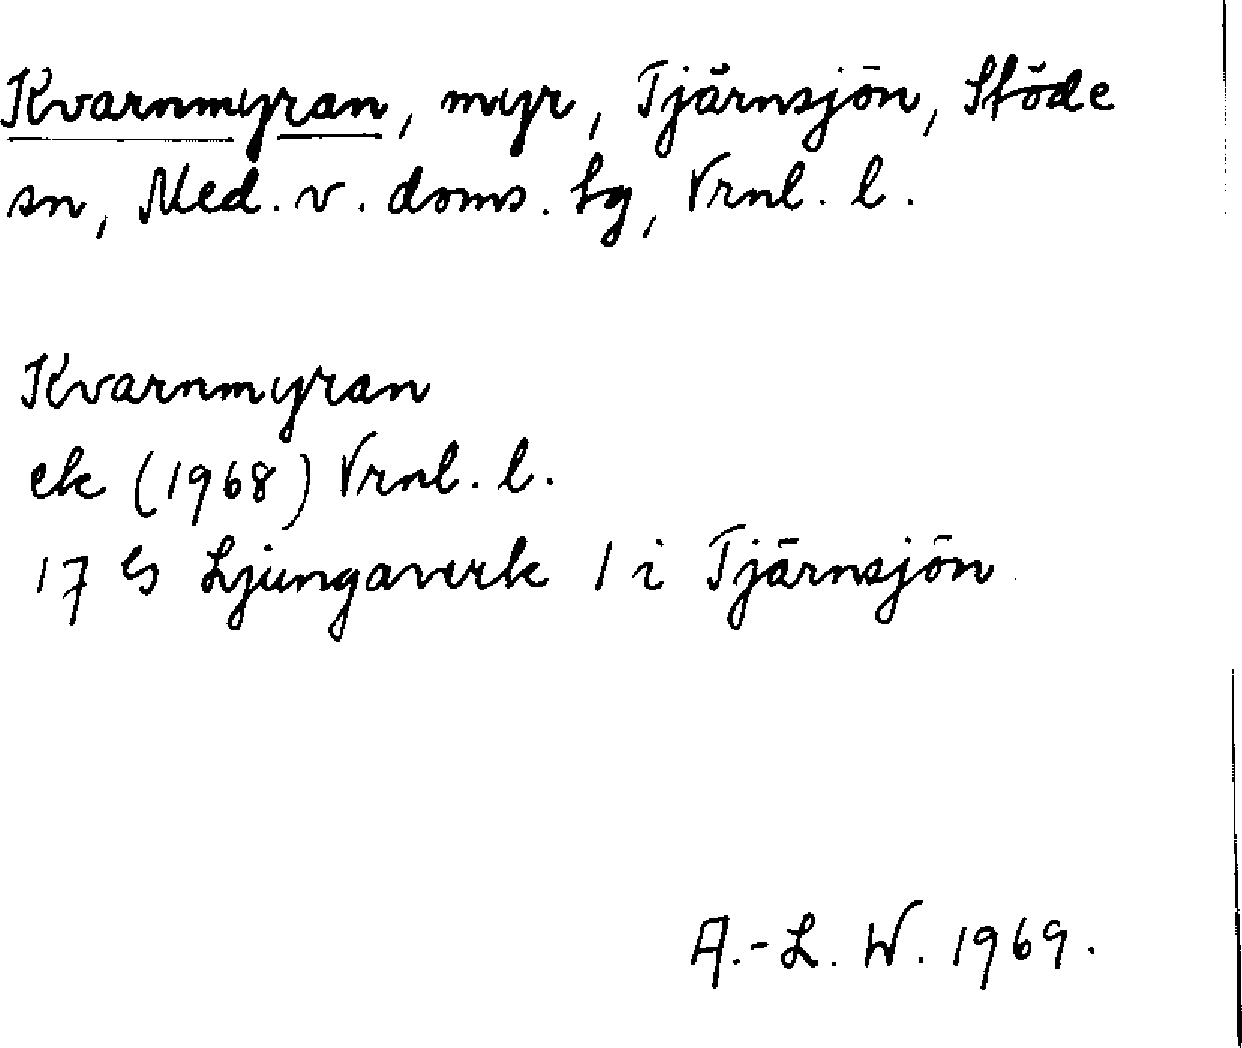 Kvarnmyran, myr, Tjärnsjön, Stöde
sn, Med. v. doms. tg, Vrnl. l.
Kvarnmyran
ek (1968) Vrnl. l.
17 G Ljungaverk 1 i Tjärnsjön
A.-L. W. 1969.